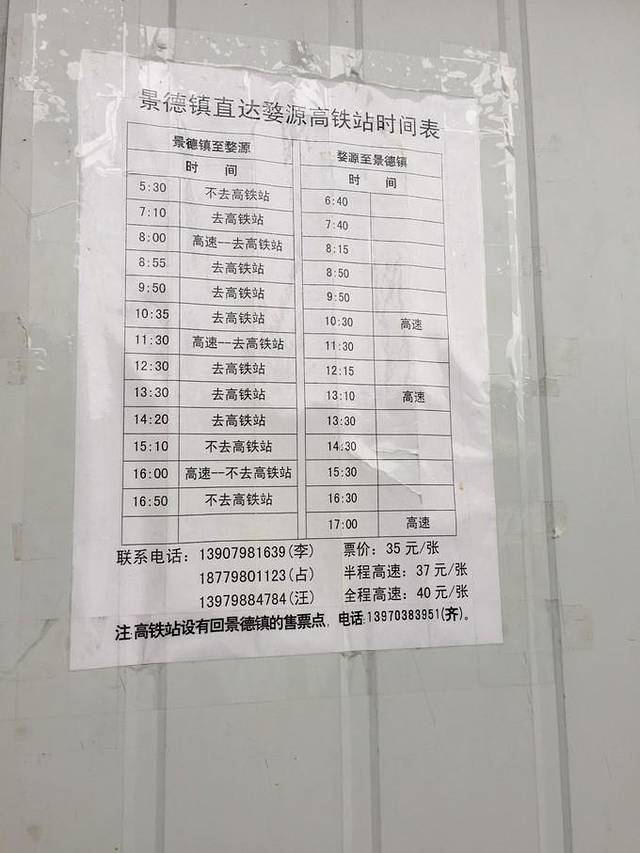 景德镇直达婺源高铁站时间表
景德镇至婺源 婺源至景德镇
时 间 时 间
5:30 不去高铁站 6:40
7:10 去高铁站 7:40
8:00 高速--去高铁站 8:15
8:55 去高铁站 8:50
9:50 去高铁站 9:50
10:35 去高铁站 10:30 高速
11:30 高速--去高铁站 11:30
12:30 去高铁站 12:15
13:30 去高铁站 13:10 高速
14:20 去高铁站 13:30
15:10 不去高铁站 14:30
16:00 高速--不去高铁站 15:30
16:50 不去高铁站 16:30
17:00 高速
联系电话：13907981639(李) 票价：35 元/张
18779801123(占) 半程高速：37 元/张
13979884784(汪) 全程高速：40 元/张
注:高铁站设有回景德镇的售票点，电话:13970383951(齐)。